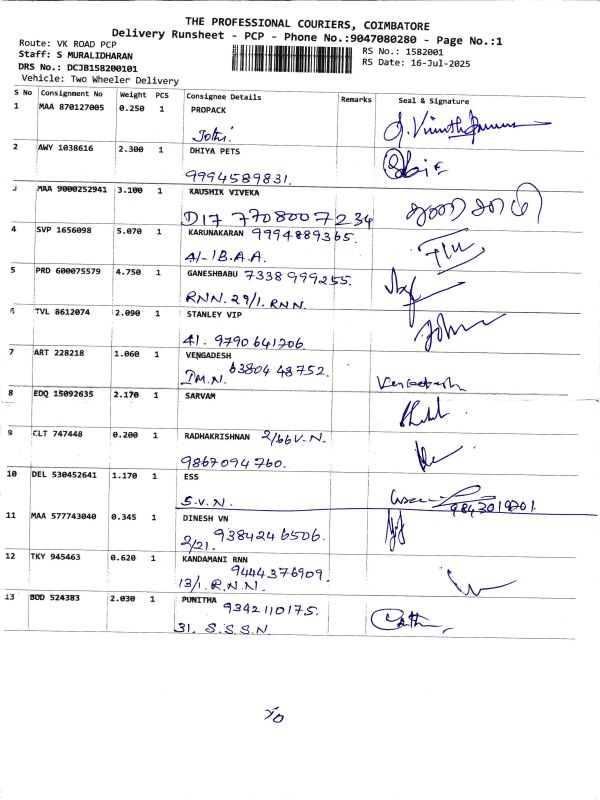 THE PROFESSIONAL COURIERS, COIMBATORE
Delivery Runsheet - PCP - Phone No.:9047080280 - Page No.:1
Route: VK ROAD PCP
Staff: S MURALIDHARAN
DRS No.: DCJB158200101
Vehicle: Two Wheeler Delivery
RS No.: 1582001
RS Date: 16-Jul-2025
S No Consignment No Weight PCS Consignee Details Remarks Seal & Signature
1 MAA 870127005 0.250 1 PROPACK
Jothi
2 AWY 1038616 2.300 1 DHIYA PETS
9994589831.
3 MAA 9000252941 3.100 1 KAUSHIK VIVEKA
D17 7708007234
4 SVP 1656098 5.070 1 KARUNAKARAN 9994889365.
4/-1B.A.A.
5 PRD 600075579 4.750 1 GANESHBABU 7338999255.
RNN. 29/1. RNN.
6 TVL 8612074 2.090 1 STANLEY VIP
41. 9790641706.
John
7 ART 228218 1.060 1 VENGADESH
I.M.N. 63804 48752.
Venkadesh
8 EDQ 15092635 2.170 1 SARVAM
9 CLT 747448 0.200 1 RADHAKRISHNAN 2/66 V.N.
9867094760.
10 DEL 530452641 1.170 1 ESS
S.V.N.
9843019201
11 MAA 577743040 0.345 1 DINESH VN
2/21. 9384246506.
12 TKY 945463 0.620 1 KANDAMANI RNN
9444376909.
13/1. R.N.N.
13 BOD 524383 2.030 1 PUNITHA
9342110175.
31. S.S.S.N.